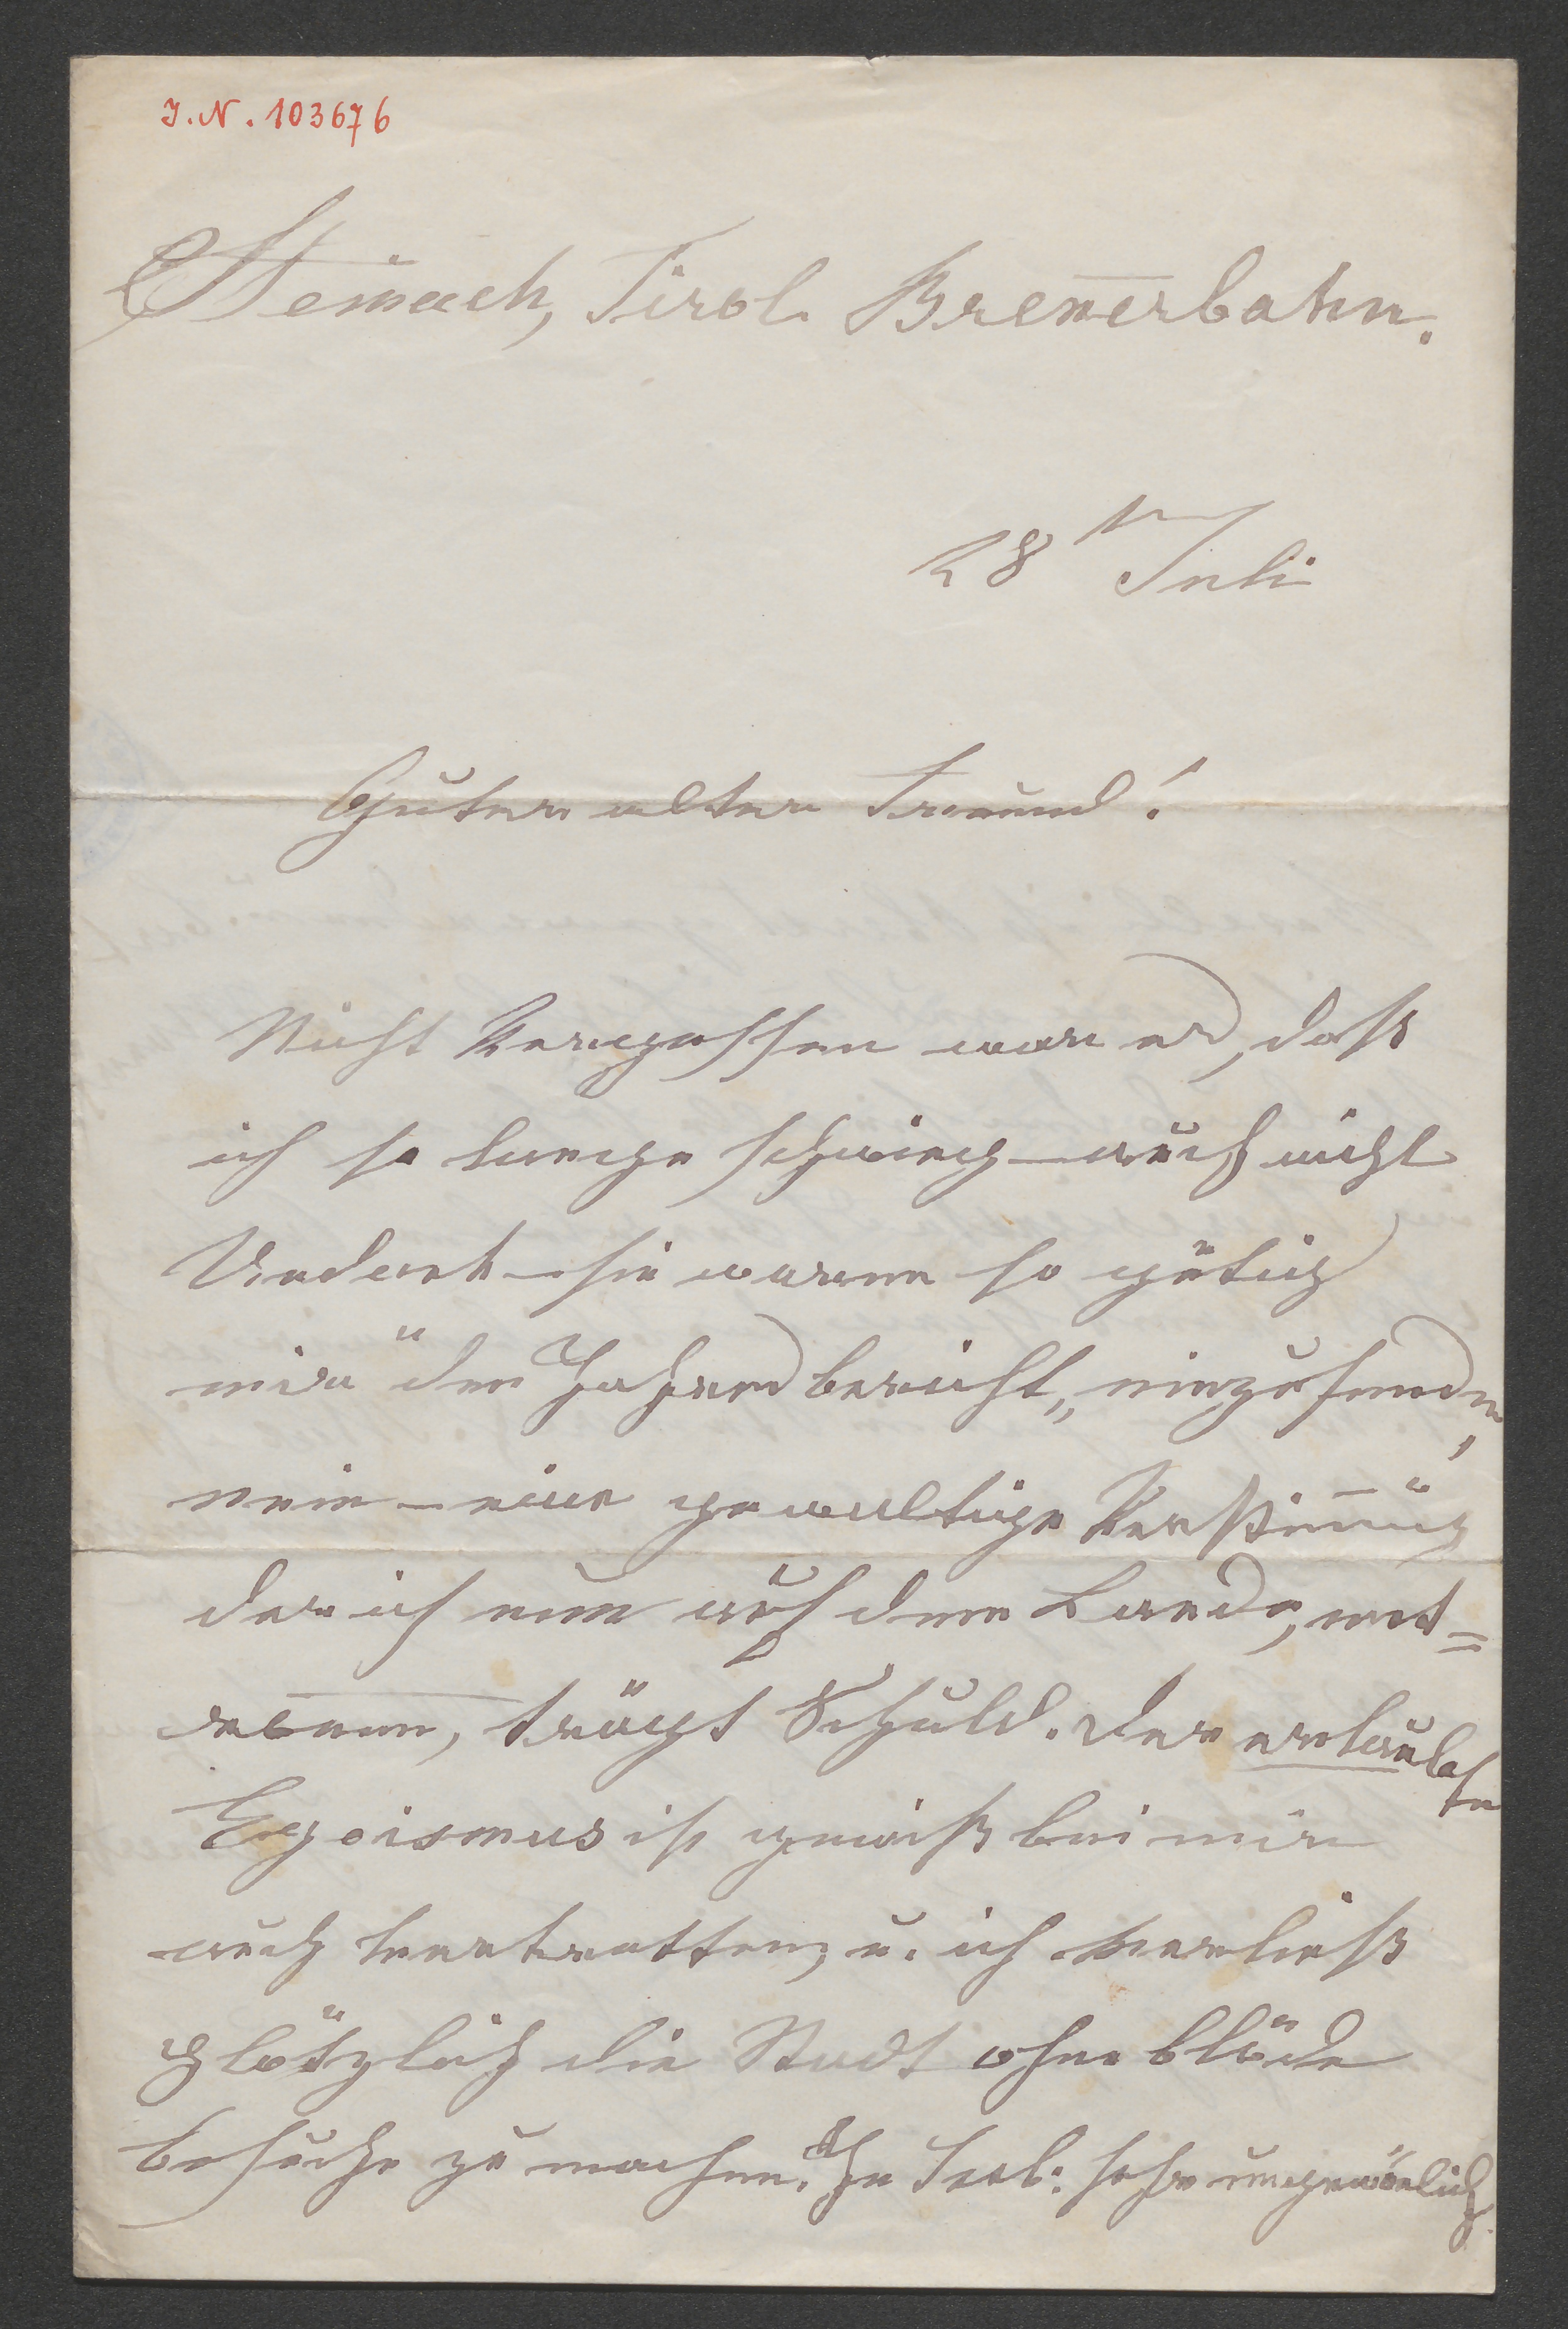 I. N. 103676
Steinach, Tirol. Breñerbahn.
28t Juli
Guter alter Freund!
Nicht Vergessen war es, daß
ich so lange schwieg – auch nicht
Undank – sie waren so gütig
mir "den Jahresbericht„ einzusenden,
nein – eine gewaltige Verstim̄ung
der ich nun auf dem Lande, ent=
ron̄en, trägt Schuld. Der erlaubte
Egoismus ist gewiß bei mir
auch
eingetretten, u. ich verließ
plötzlich die Stadt ohne blöde
Besuche zu machen. Ihr
sehr ungewönlich